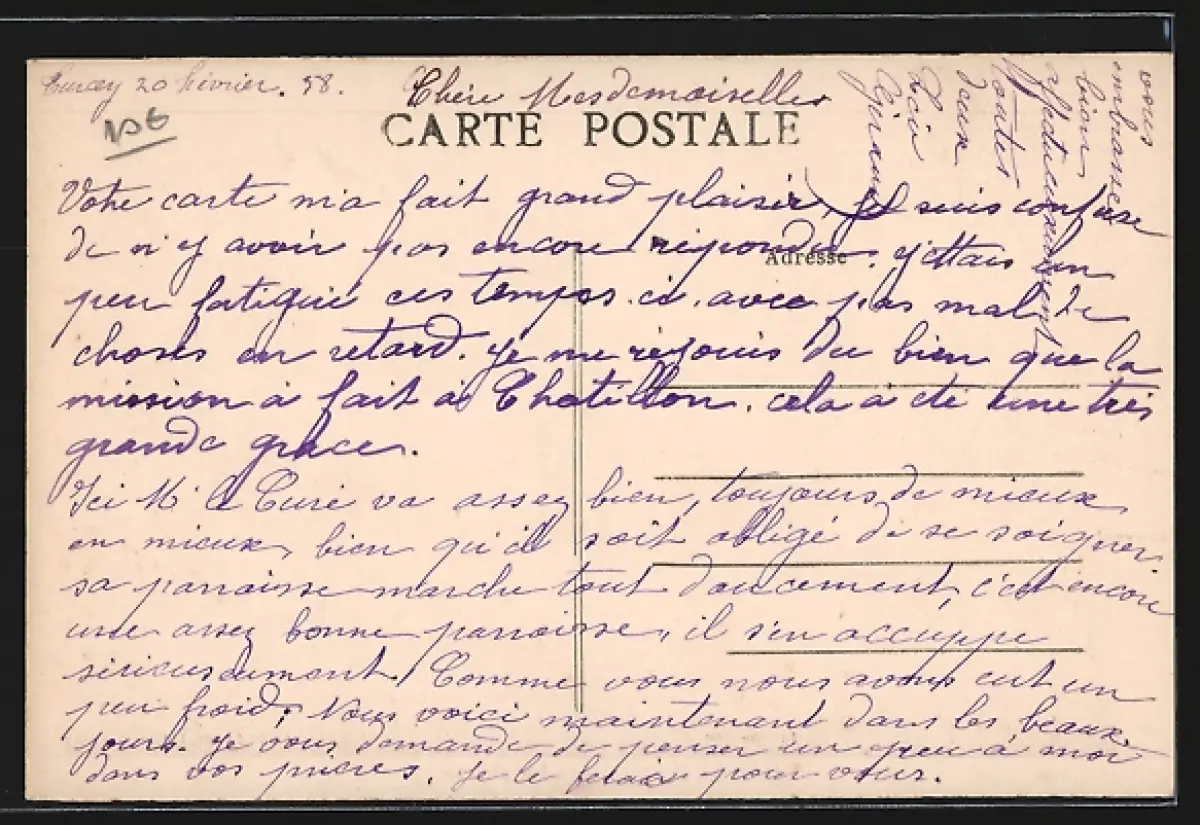 20 février. 58.
156
Chère Mesdemoiselles
CARTE POSTALE
Votre carte m'a fait grand plaisir, je suis confuse
de n'y avoir pas encore répondu. j'ettais un
Adresse
peu fatigué ces temps ci, avec pas mal de
choses en retard. je me réjouis du bien que la
mission à fait à Chatillon. cela à été une très
grande grâce.
Ici Mr le Curé va assez bien, toujours de mieux
en mieux, bien qu'il soit obligé de se soigner
sa parroisse marche tout doucement, c'est encore
une assez bonne parroisse, il s'en accuppe
sérieusement. Comme vous nous avons eut un
peu froid, Nous voici maintenant dans les beaux
jours. je vous demande de penser un peu à moi
dans vos prières. je le ferais pour vous.
vous
embrasse
bien
affectueusement
toutes
deux